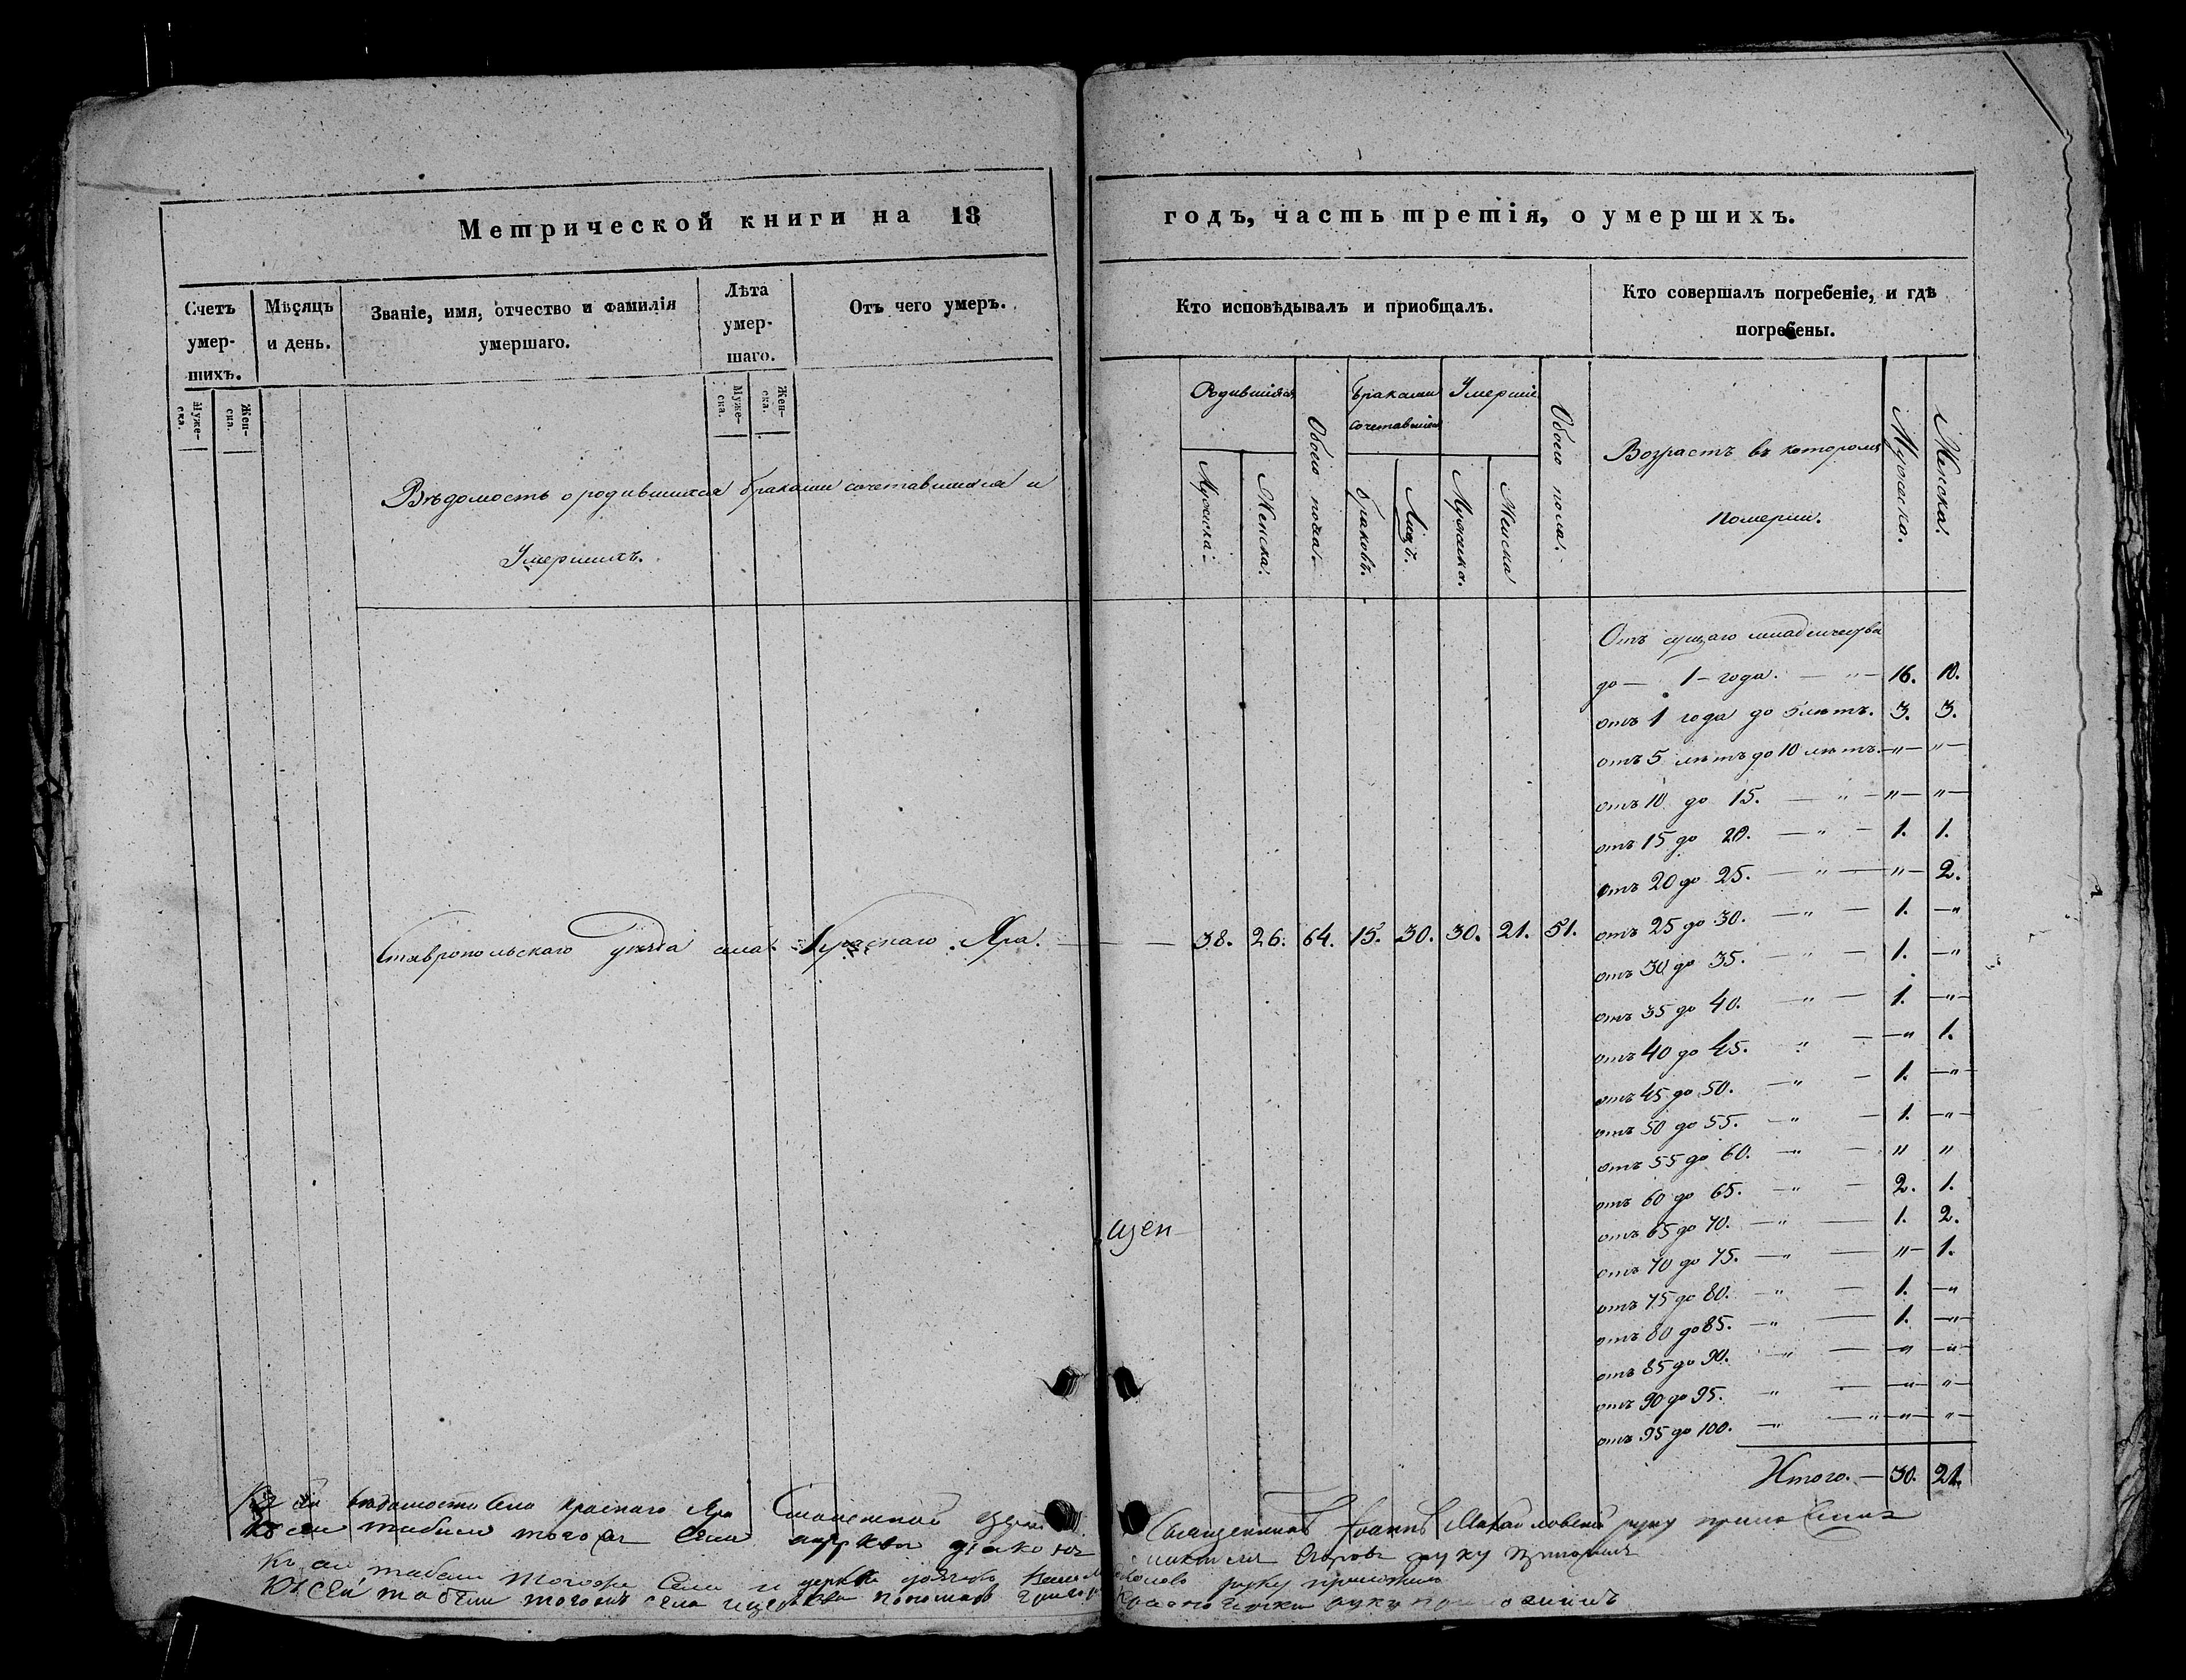 Метрической книги на 18
годъ, часть третія, о умершихъ.
Счетъ умер-шихъ.
Мѣсяцъ и день.
Званіе, имя, отчество и фамилія умершаго.
Лѣта умер-шаго.
Отъ чего умеръ.
Кто исповѣдывалъ и приобщалъ.
Кто совершалъ погребеніе, и гдѣ погребены.
Муже-ска.
Жен-ска.
Муже-ска.
Жен-ска.
Вѣдомость о родившихся браками сочетавшихся и
Умершихъ.
Родившіяся
Мужска.
Женска.
Обоего пола.
Браками сочетавшіеся
браковъ.
Лицъ.
Умершіе
Мужска.
Женска
Обоего пола.
Возрастъ въ которомъ
померли.
Мужеска.
Женска.
Ставропольскаго уѣзда села Краснаго Яра. 38. 26. 64. 15. 30. 30. 21. 51.
Отъ сущаго младенчества
до — 1 – года. — „ — 16. 10.
отъ 1 года до 5 лѣтъ. 3. 3.
отъ 5 лѣтъ до 10 лѣтъ. — „ — „ —
отъ 10 до 15. — „ — „ — „ —
отъ 15 до 20. — „ — 1. 1.
отъ 20 до 25. — „ — „ — 2.
отъ 25 до 30. — „ — 1. — „
отъ 30 до 35. — „ — 1. — „
отъ 35 до 40. — „ — 1. — „ —
отъ 40 до 45. „ — — „ 1.
отъ 45 до 50. — „ — 1. — „ —
отъ 50 до 55. — „ — 1. — „ —
отъ 55 до 60. — „ — „ „
отъ 60 до 65. — „ — 2. 1.
отъ 65 до 70. — „ — 1. 2.
отъ 70 до 75. — „ — „ — 1.
отъ 75 до 80. — „ — 1. — „
отъ 80 до 85. — „ — 1. — „ —
отъ 85 до 90. „ — — „ — „ —
отъ 90 до 95. „ — — „ — „ —
отъ 95 до 100. — „ — „ — „ — „ —
Итого. — 30. 21.
щен
Къ сей вѣдомости села краснаго Яра Священникъ Іоаннъ руку приложилъ
Къ сей табели того же Села церкви діаконъ Егоровъ руку приложилъ
Къ сей табели тогоже Села и церкви руку приложилъ
Къ сей табели тогожъ села и церкви пономарь руку приложилъ